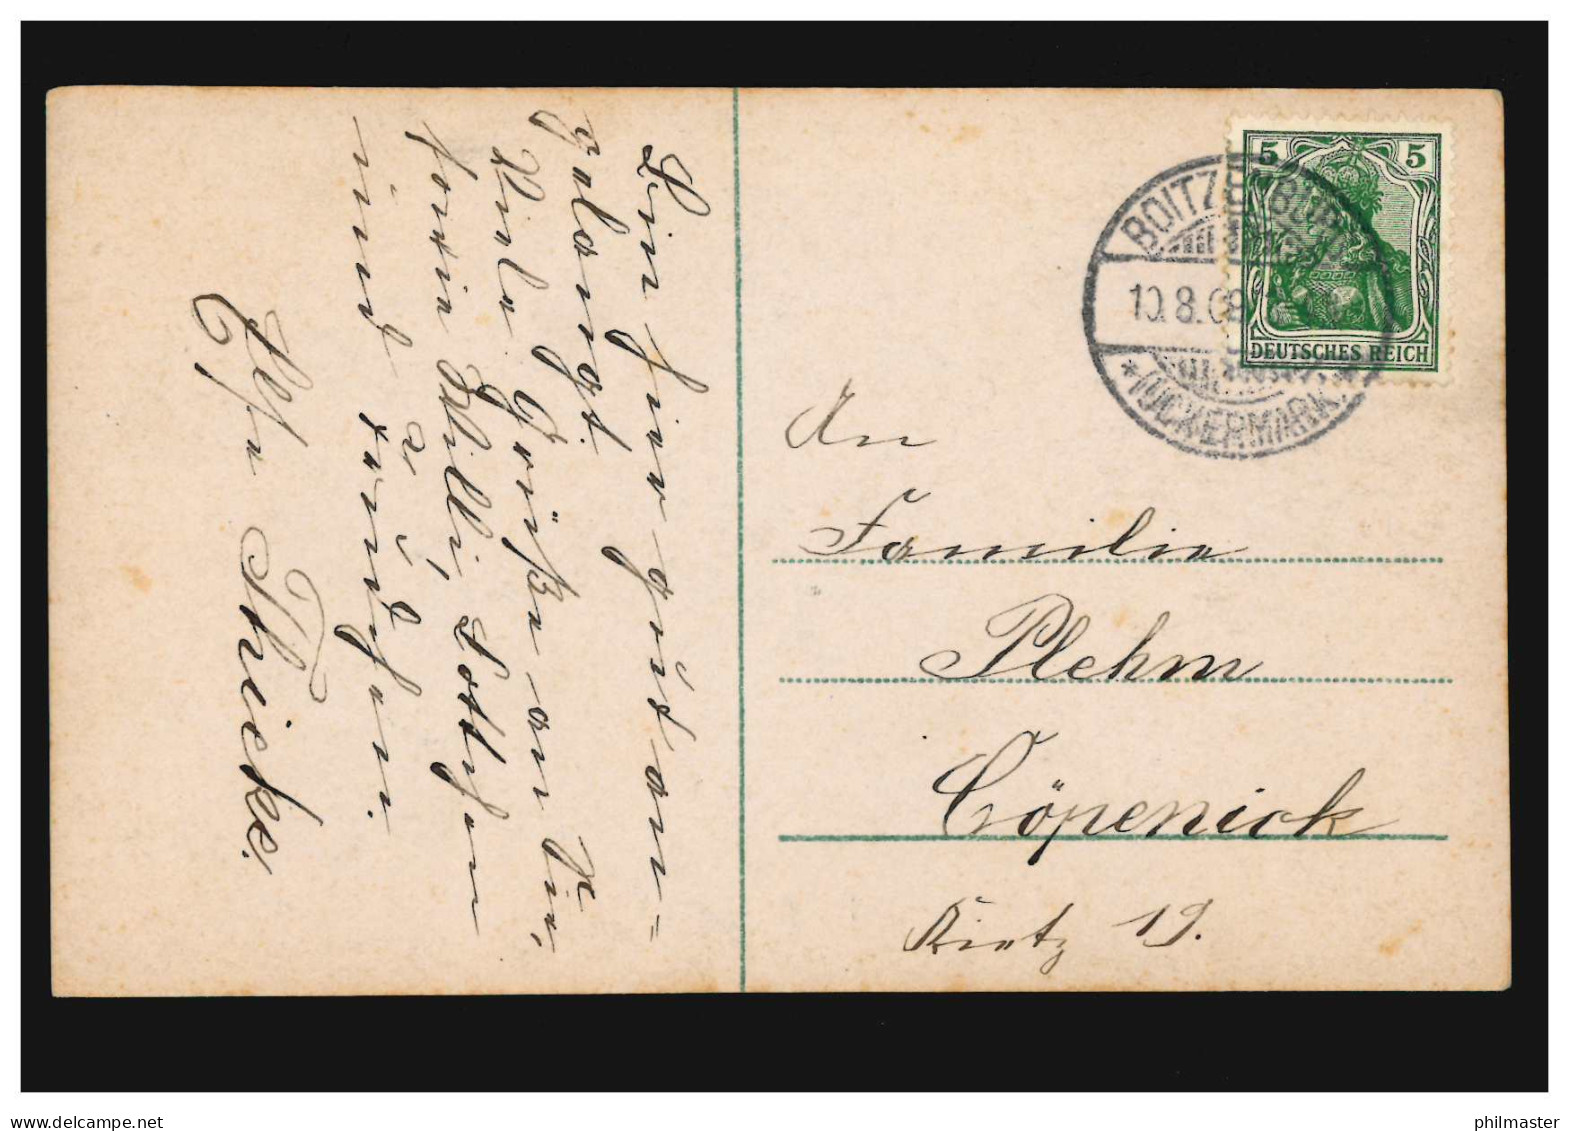 Bin hier gut an-
gelangt.
Viele Grüße an Sie,
sowie Willi, Lottchen
und
Ihre Thieke.
5 5
DEUTSCHES REICH
BOITZENBURG
10.8.08
* (UCKERMARK)
An
Familie
Plehm
Cöpenick
Kietz 19.
delcampe.net
philmaster